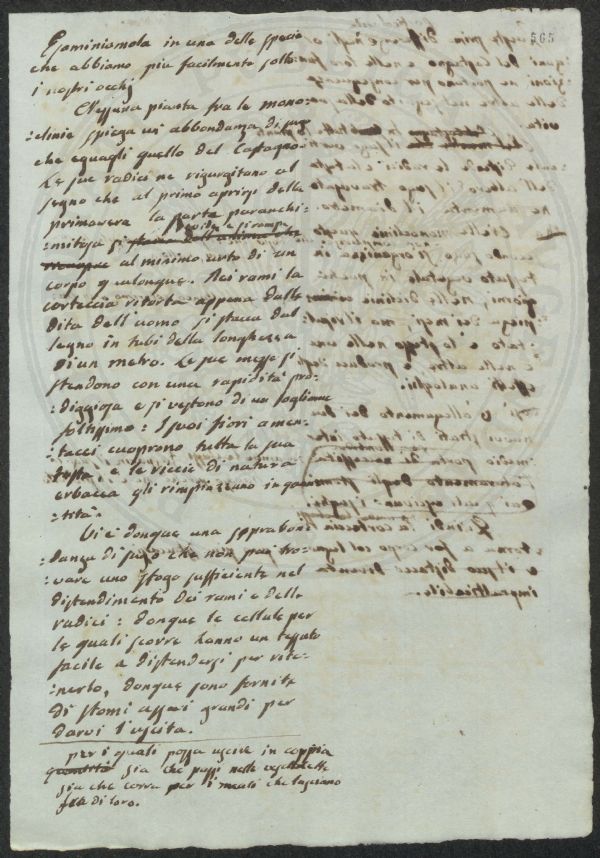 565
Esaminiamola in una delle specie
che abbiamo piu facilmente sotto
i nostri occhj
Nessuna pianta fra le mono-
:clinie spiega un' abbondanza di sugo
che eguagli quello del Castagno.
Le sue radici ne rigurgitano al
segno che al primo aprirsi della
primavera la parte paranchi-
:mitosa si
al minimo urto di un
corpo qualonque. Nei rami la
corteccia ritorta appena dalle
dita dell'uomo si stacca dal
legno in tubi della longhezza
di un metro. Le sue messe si
stendono con una rapidità pro-
:diggiosa e si vestono di un fogliame
foltissimo: I suoi fiori amen-
:tacei cuoprono tutta la sua
testa, e le riccie di natura
erbacea gli rimpiazzano in quan
:tità.
Vi è donque una soprabon
:danza di sugo che non può tro-
:vare uno sfogo sufficiente nel
distendimento dei rami e delle
radici: donque le cellule per
le quali scorre hanno un tessuto
facile a distendersi per rite-
:nerlo, donque sono fornite
di stomi assai grandi per
darvi l'uscita.
per i quali possa uscire in coppia
quantità sia che passi nelle
sia che corra per i meati che lasciano
di loro.